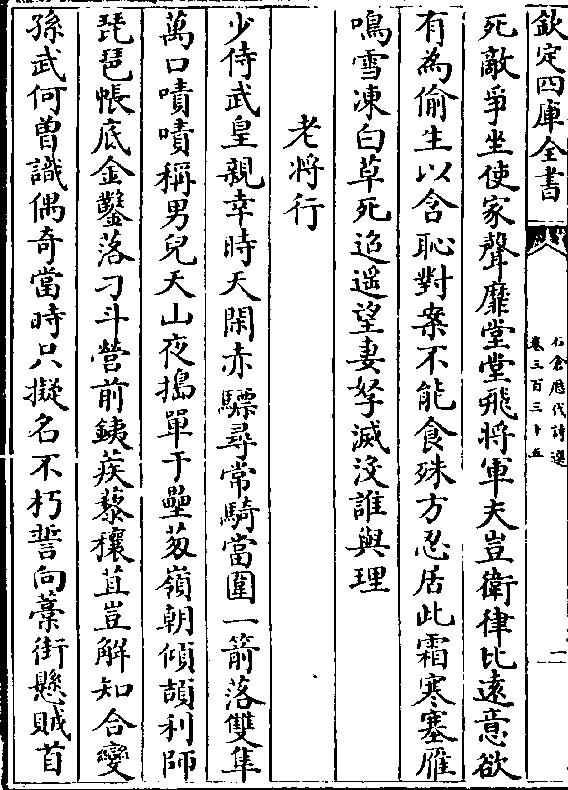 欽定四庫全書
石倉歷代詩選
卷三百三十五
二
死敵爭坐使家聲靡堂堂飛將軍夫豈衛律比遠意欲
有為偷生以含恥對案不能食殊方忍居此霜寒塞雁
鳴雪凍白草死迢遥望妻孥滅没誰與理
老將行
少侍武皇親幸時天閑赤驃尋常騎當圍一箭落雙隼
萬口嘖嘖稱男兒天山夜搗單于壘葱嶺朝傾頡利師
琵琶帳底金鑿落刁斗營前鐵蒺藜穰苴豈解知合變
孫武何曽識偶奇當時只擬名不朽誓向藁街懸賊首